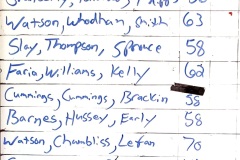 Watson, Woodhan, Smith 63
Slay, Thompson, Spruce 58
Faria, Willians, Kelly 62
Cummings, Cummings, Brackin 58
Barnes, Hussey, Early 58
Watson, Chambliss, Lefan 70